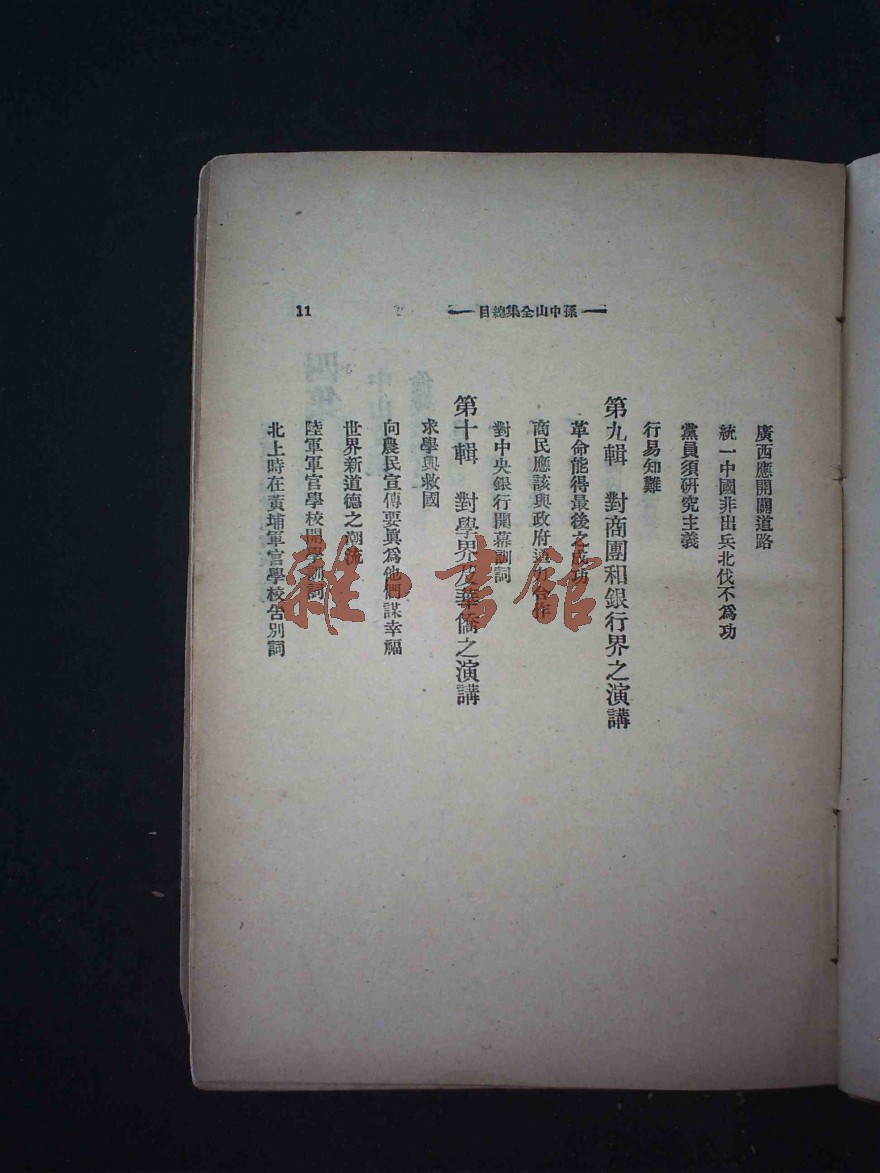 孫中山全集總目
11
廣西應開闢道路
統一中國非出兵北伐不爲功
黨員須研究主義
行易知難
第九輯 對商團和銀行界之演講
革命能得最後之成功
商民應該與政府通力合作
對中央銀行開幕訓詞
第十輯 對學界及華僑之演講
求學與救國
向農民宣傳要眞爲他們謀幸福
世界新道德之潮流
陸軍軍官學校開學訓詞
北上時在黃埔軍官學校告別詞
雜·書館